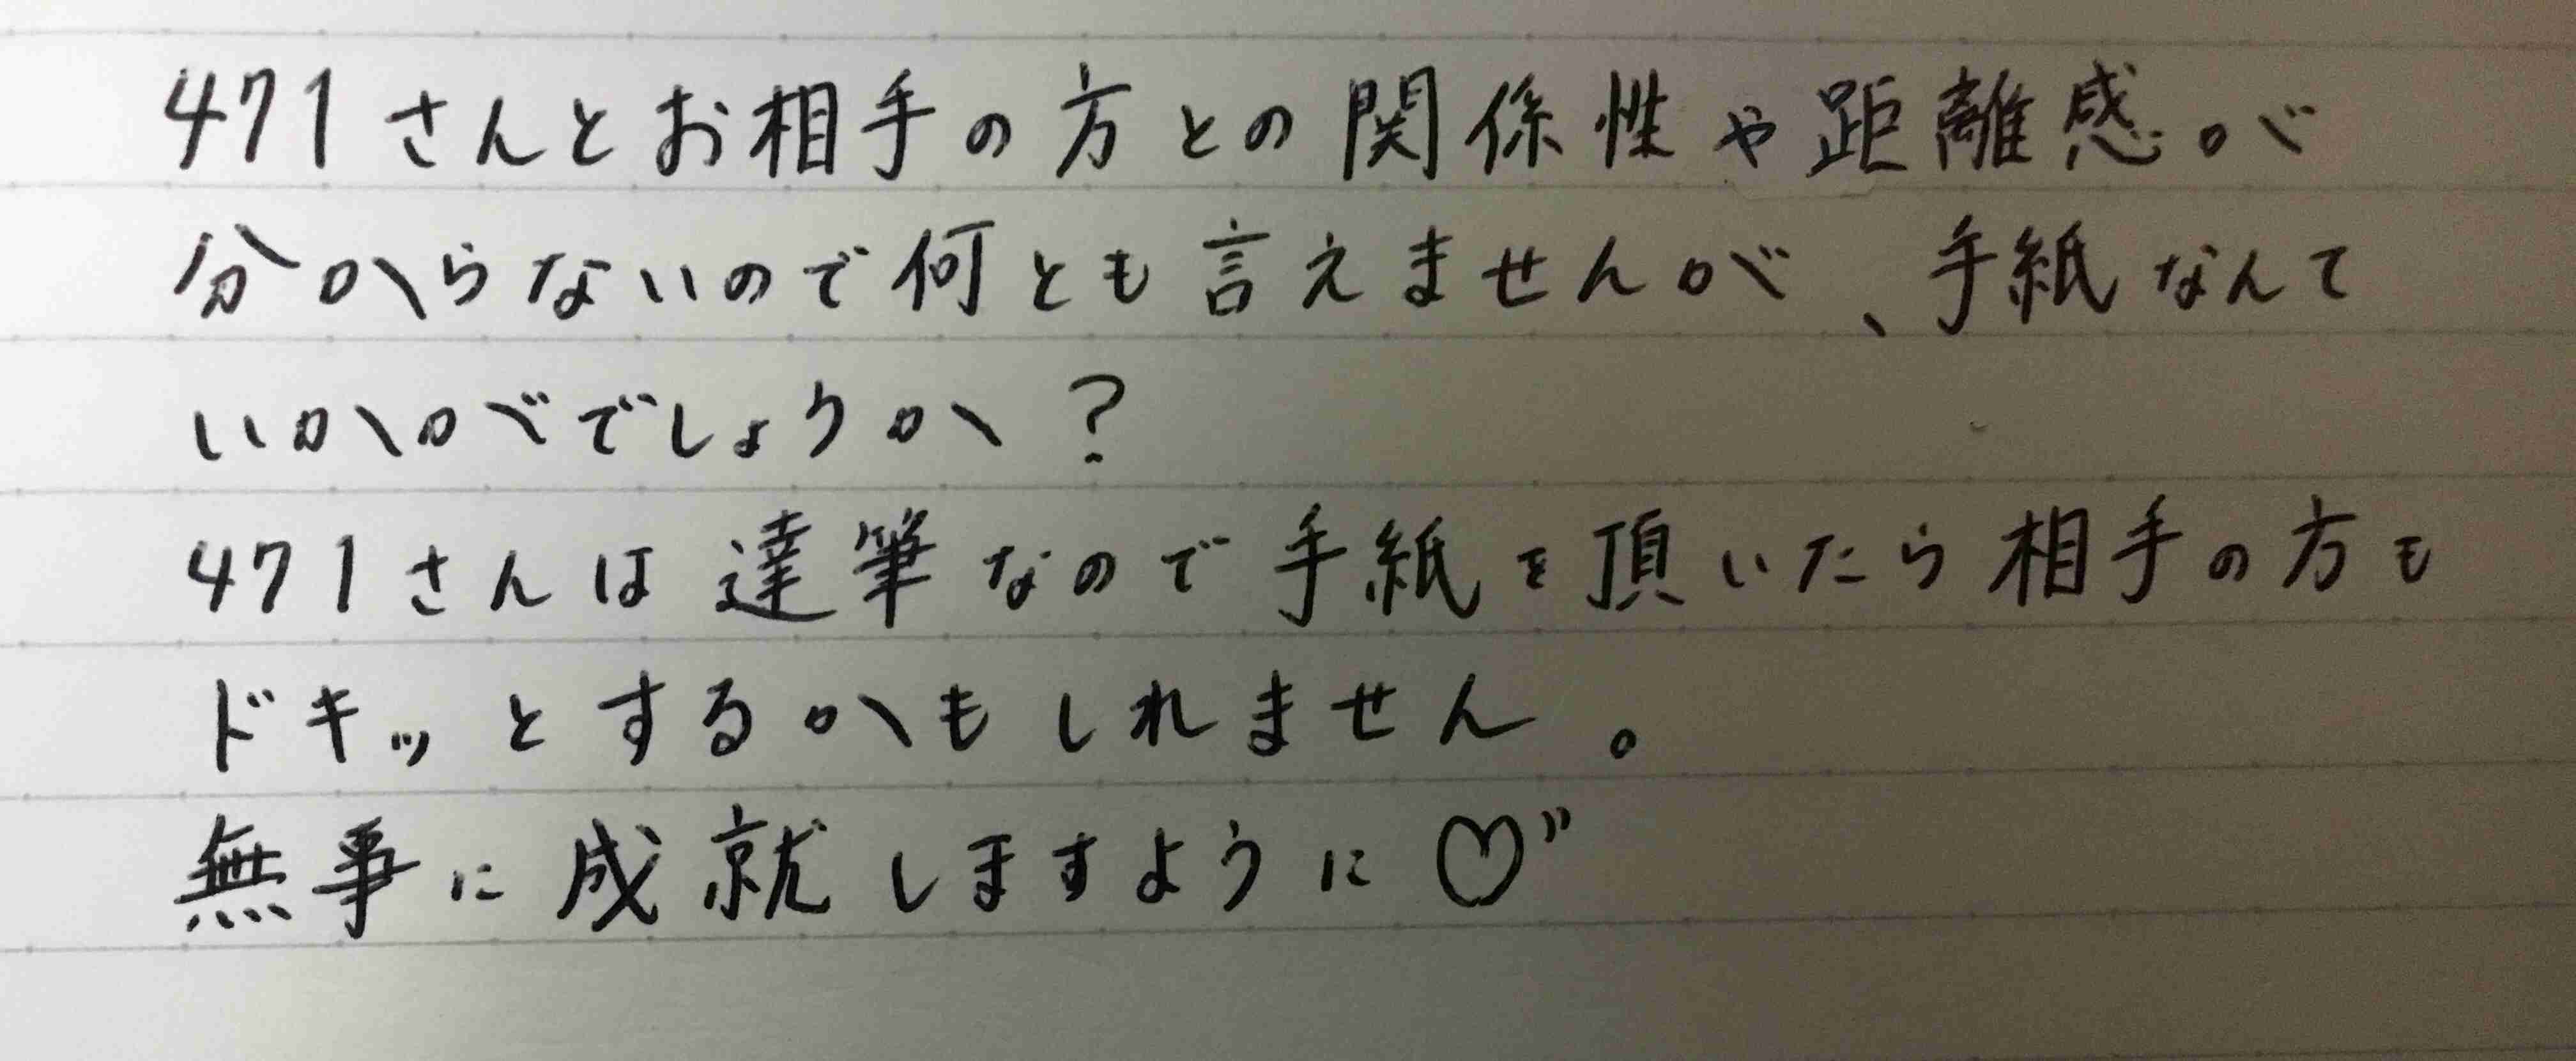 471さんとお相手の方との関係性や距離感が
分からないので何とも言えませんが、手紙なんて
いかがでしょうか?
471さんは達筆なので手紙を頂いたら相手の方も
ドキッとするかもしれません。
無事に成就しますように♡"